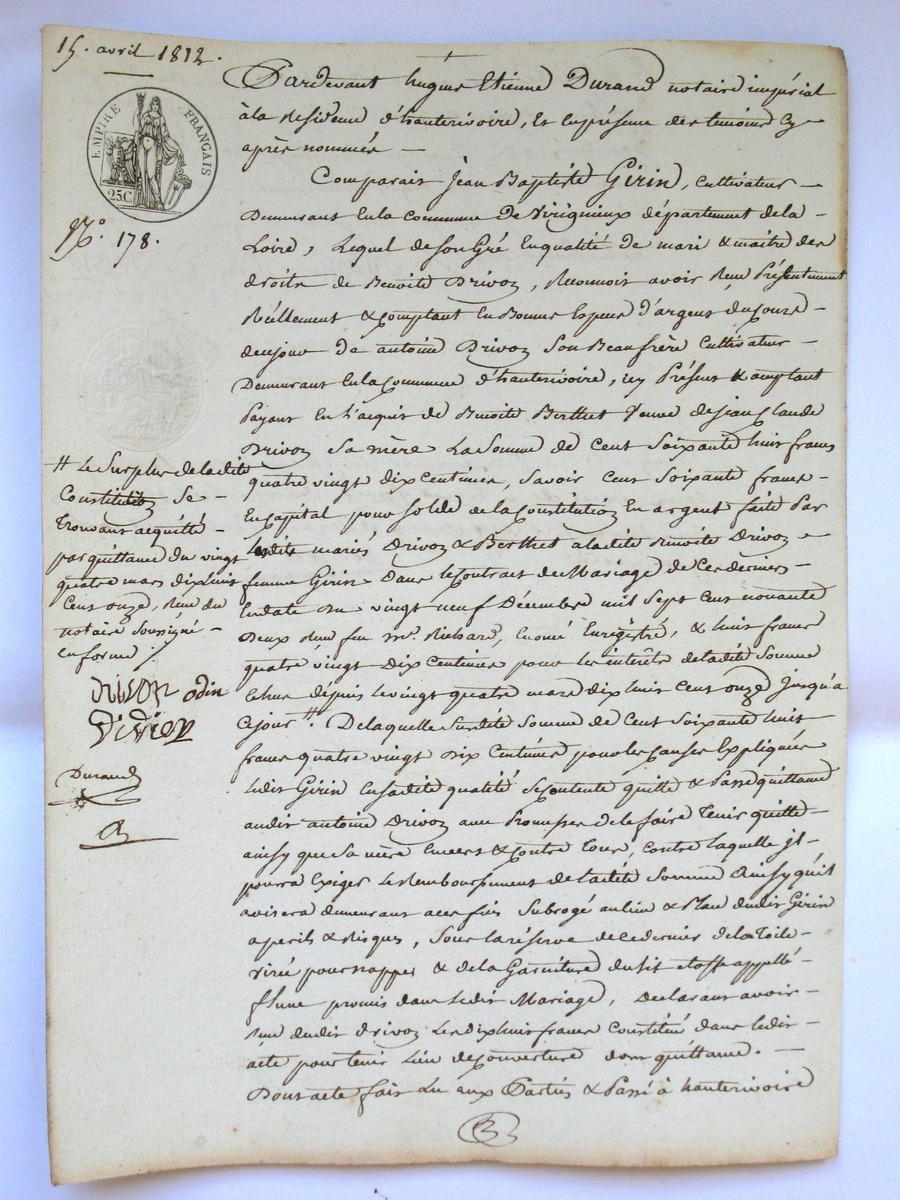 15. avril 1812.
EMPIRE FRANÇAIS
25 C.
N.º 178.
Pardevant hugues Etienne Durand notaire impérial
à la Residence d'hauterivoire, Et en présence des temoins Cy-
après nommés —
Comparait Jean Baptiste Girin, Cultivateur —
Demeurant En la Commune De Virigneux département de la —
Loire, Lequel de son Gré En qualité De mari & maître des
droits de Benoite Drivon, Reconnoit avoir Reçu Présentement
Réellement & Comptant En Bonnes Especes d'argent du Cours —
de ce jour d'antoine Drivon Son Beaufrère Cultivateur —
Demeurant En la Commune d'hauterivoire, icy Présent & acceptant
Payant En l'acquit de Benoite Berthet Veuve de Jean Claude
Drivon Sa mère La Somme De Cent Soixante huit francs
quatre vingt dix Centimes, Savoir Cent Soixante francs —
En Capital pour Solde de la Constitution En argent faite Par
lesdits mariés Drivon & Berthet a ladite Benoite Drivon —
femme Girin Dans le Contract de Mariage de Ces derniers
En date du vingt neuf Décembre mil Sept Cent nonante
Deux Reçu feu mr. Richard, En Enregistré, & huit francs
quatre vingt Dix Centimes pour les interêts de ladite Somme
Echus dépuis le vingt quatre mars dix huit Cent onze jusqu'a
Ce jour #. De laquelle Susdite Somme de Cent Soixante huit
francs quatre vingt Dix Centimes pour les Causes Expliquées
Ledit Girin En sadite qualité Se Contente quitte & Passe quittance
audit antoine Drivon avec Promesse de le faire Tenir quitte —
ainsy que Sa mère Envers & Contre Tous, Contre laquelle il —
pourra Exiger le Remboursement de ladite Somme Ainsy qu'il
avisera demeurant a ces fins Subrogé au lieu & Place dudit Girin
a perils & Risques, Sous la réserve de Ce dernier de la Toile —
virée pour nappes & de la Garniture du lit Etoffe appellé
promis dans ledit Mariage, Déclarant avoir —
Reçu dudit Drivon Les dix huit francs Constitués dans ledit —
acte pour tenir Lieu de Couverture dont quittance. —
Dont acte fait Lu aux Parties & Passé à hauterivoire
# Le Surplus de ladite
Constitution Se —
Trouvant acquitté —
par quittance du vingt
quatre mars dix huit
Cent onze, Reçu du
notaire Soussigné —
en forme ./.
Drivon odin
Durand